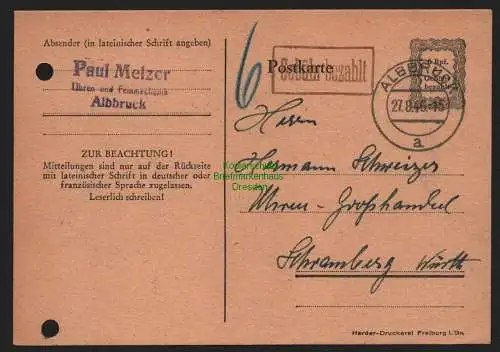 Absender (in lateinischer Schrift angeben)
Paul Melzer
Uhren und Feinmechanik
Albbruck
ZUR BEACHTUNG!
Mitteilungen sind nur auf der Rückseite
mit lateinischer Schrift in deutscher oder
französischer Sprache zugelassen.
Leserlich schreiben!
6
Postkarte
Gebühr bezahlt
6 Rpf.
Gebühr
bezahlt
ALBBRUCK
27.8.46.-15
a
Herrn
Hermann Schweizer
Uhren-Großhandel
Schramberg Württ
Kopierschutz
Briefmarkenhaus
Dresden
Herder-Druckerei Freiburg i. Br.